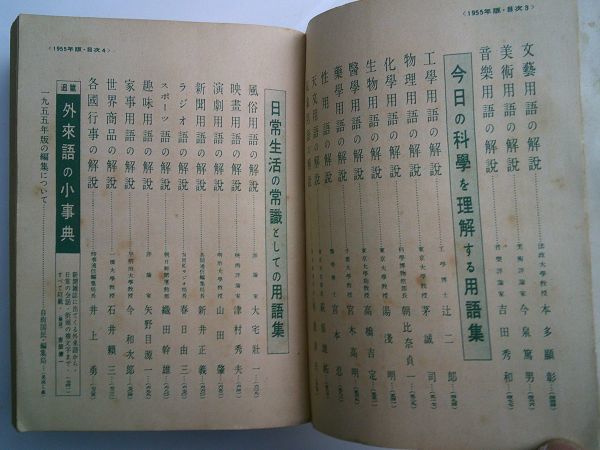 〈1955年版・目次3〉
文藝用語の解説 法政大學教授 本多顯彰
美術用語の解説 美術評論家 今泉篤男
音樂用語の解説 音樂評論家 吉田秀和
今日の科學を理解する用語集
工學用語の解説 工學博士 辻二郎
物理用語の解説 東京大學教授 茅誠司
化學用語の解説 科學博物館部長 朝比奈貞一
生物用語の解説 東京大學教授 湯淺明
醫學用語の解説 東京大學教授 高橋吉定
藥學用語の解説 宮木高明
性用語の解説 宮本忍
天文用語の解説
〈1955年版・目次4〉
日常生活の常識としての用語集
風俗用語の解説 評論家 大宅壯一
映畫用語の解説 映畫評論家 津村秀夫
演劇用語の解説 明治大學教授 山田肇
新聞用語の解説 共同通信編集局長 新井正義
ラジオ語の解説 春日由三
スポーツ語の解説 朝日新聞運動部 織田幹雄
趣味用語の解説 評論家 矢野目源一
家事用語の解説 早稻田大學教授 今和次郎
世界商品の解説 一橋大學教授 石井頼三
各國行事の解説 時事通信編集局長 井上勇
外來語の小事典
新聞雜誌に出てくる外來語から、
日常の会話、街頭の横文字まで、
すべて収載
一九五五年版の編集について 自由国民・編集局